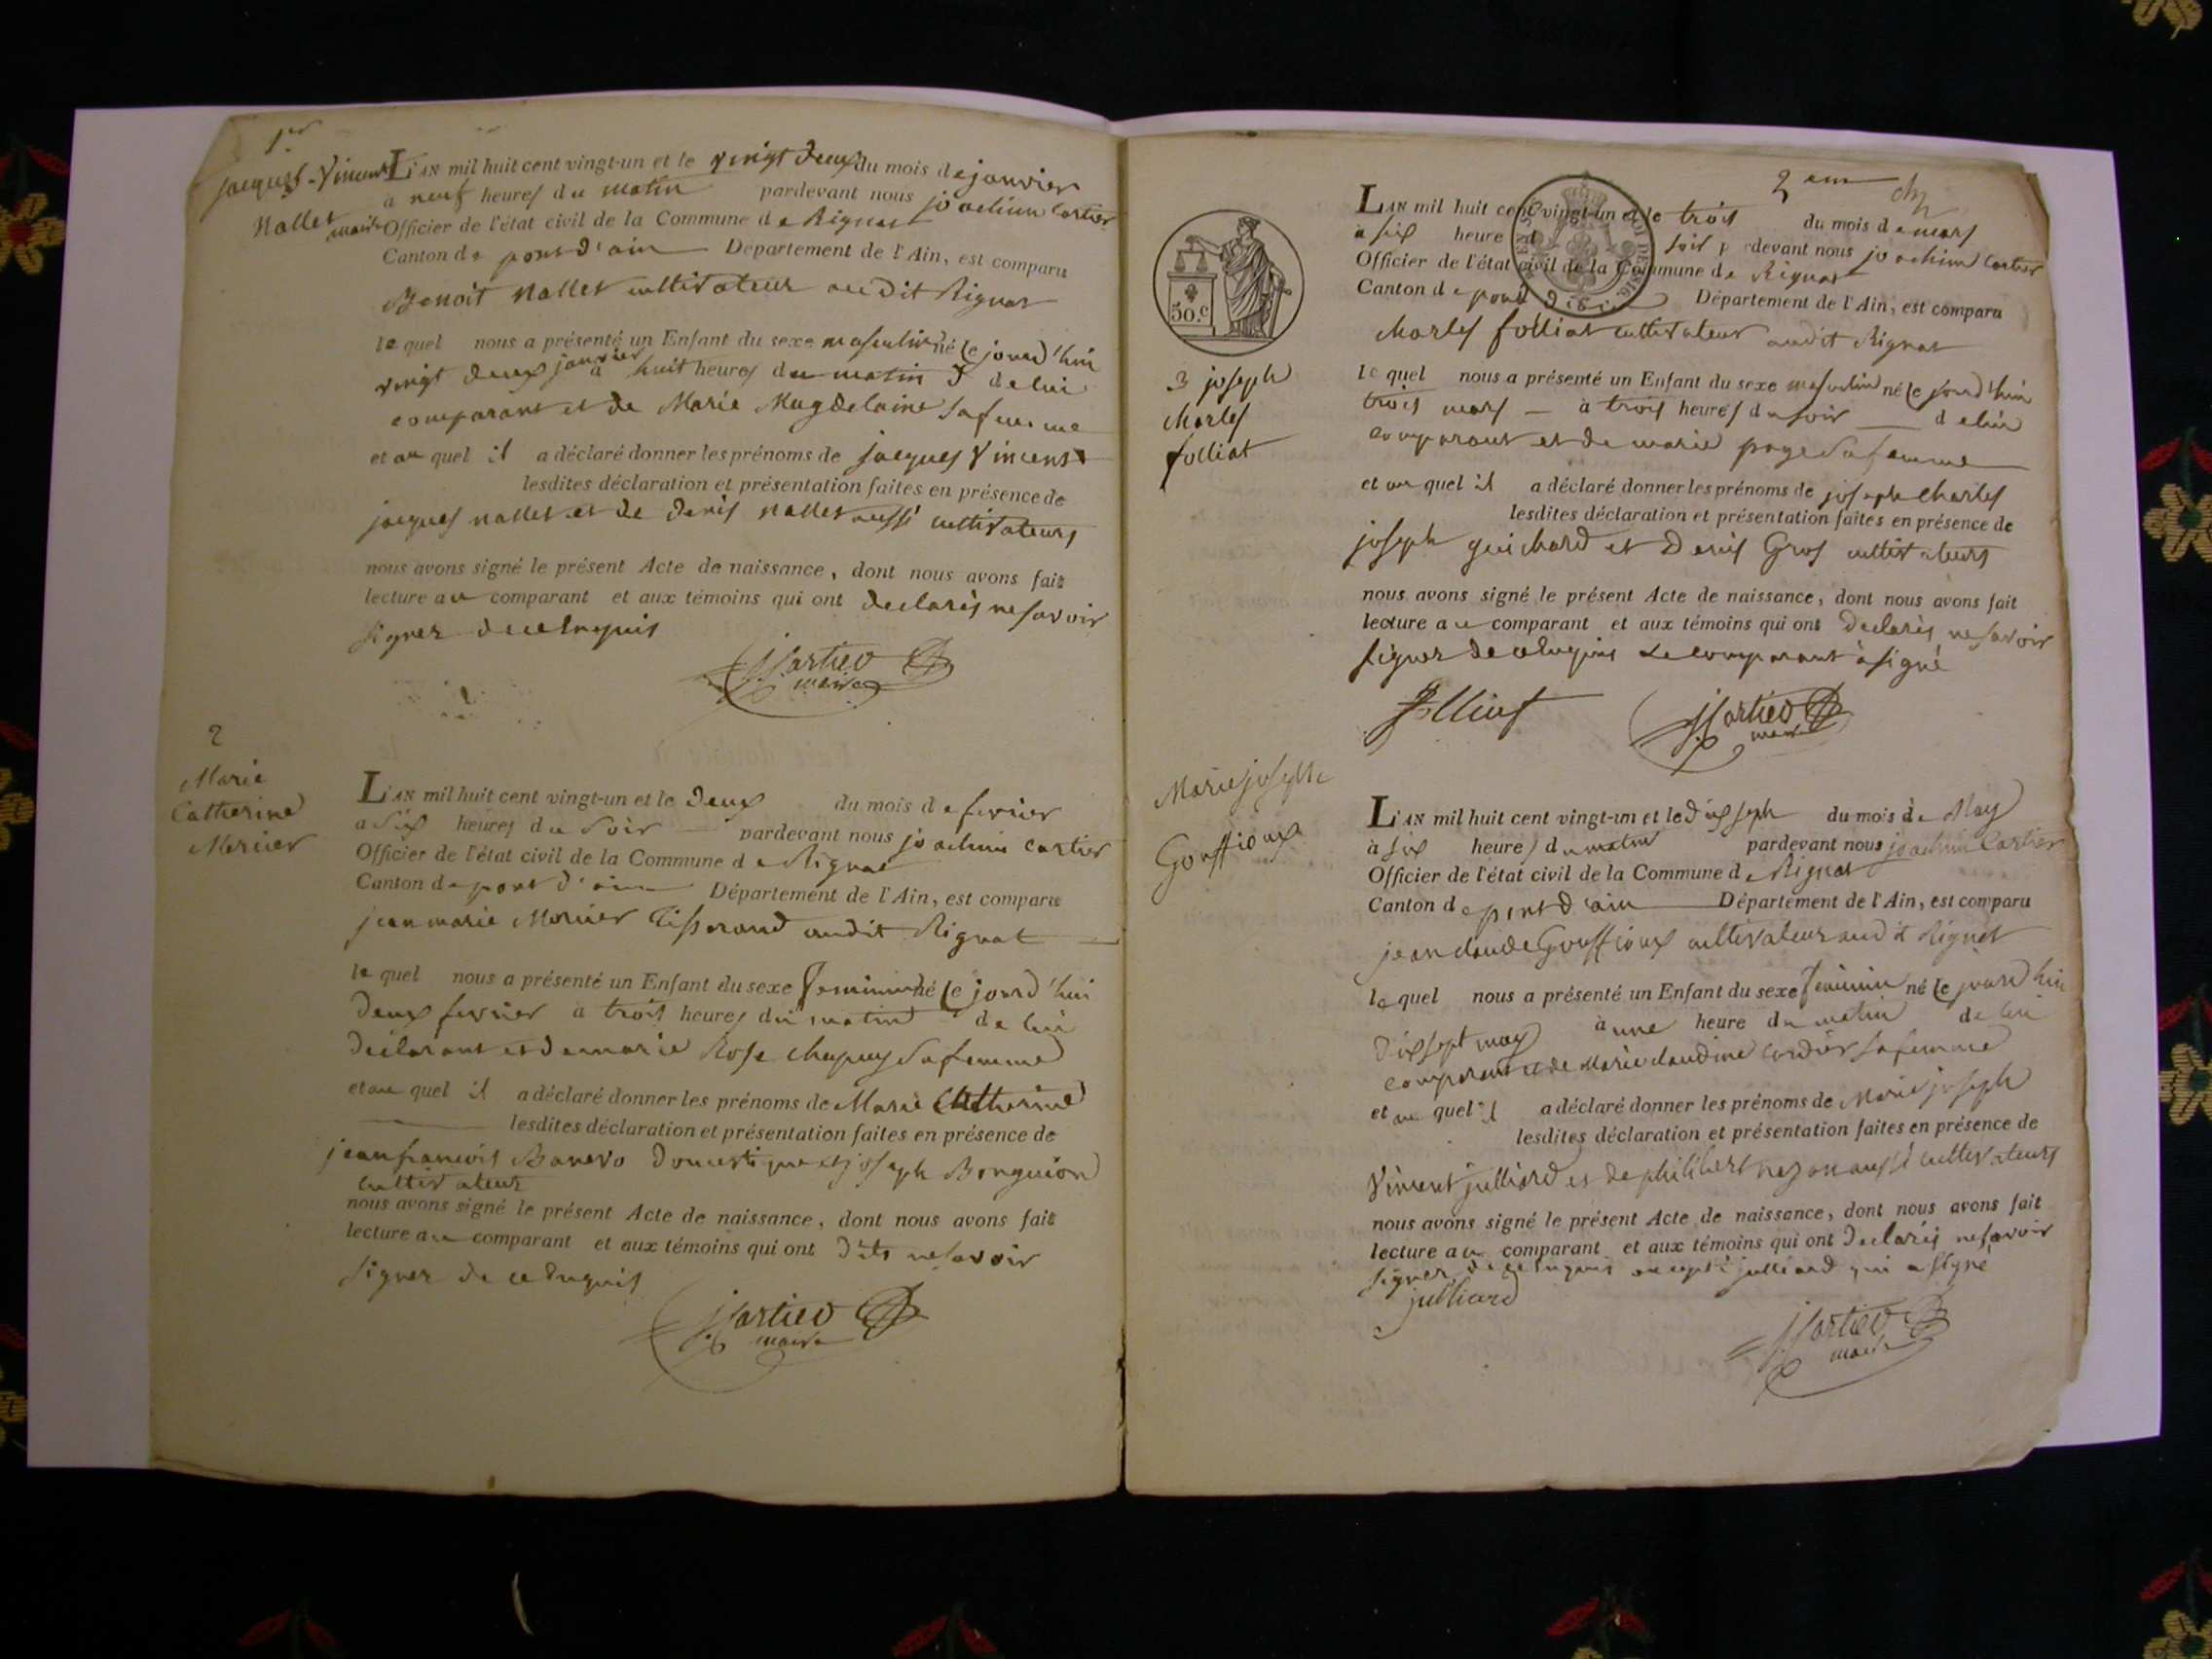 1.er
Jacques-Vincent
Nallet
L'AN mil huit cent vingt-un et le vingt deux du mois de janvier
à neuf heures du matin pardevant nous joachim Cartier
maire Officier de l'état civil de la Commune de Rignat
Canton de pont d'ain Département de l'Ain, est comparu
Benoit Nallet cultivateur audit Rignat
lequel nous a présenté un Enfant du sexe masculin né ce jourd'hui
vingt deux janvier à huit heures du matin de lui
comparant et de Marie Magdelaine sa femme
et au quel il a déclaré donner les prénoms de jacques Vincent
lesdites déclaration et présentation faites en présence de
jacques nallet et de denis nallet aussi cultivateurs
nous avons signé le présent Acte de naissance, dont nous avons fait
lecture au comparant et aux témoins qui ont declarés ne savoir
signer de ce enquis
J Cartier
maire
2
Marie
Catherine
Mercier
L'AN mil huit cent vingt-un et le deux du mois de fevrier
à six heures du soir pardevant nous joachim Cartier
Officier de l'état civil de la Commune de Rignat
Canton de pont d'ain Département de l'Ain, est comparu
jean marie Mercier Tisserand audit Rignat
lequel nous a présenté un Enfant du sexe feminin né ce jourd'hui
deux fevrier à trois heures du matin de lui
déclarant et de marie Rose chapuy sa femme
et au quel il a déclaré donner les prénoms de Marie Catherine
lesdites déclaration et présentation faites en présence de
jean francois domestique et joseph
cultivateur
nous avons signé le présent Acte de naissance, dont nous avons fait
lecture au comparant et aux témoins qui ont dits ne savoir
signer de ce enquis
J Cartier
maire
2 em
50.c
3 joseph
charles
folliat
L'AN mil huit cent vingt-un et le trois du mois de mars
à six heure soir pardevant nous joachim Cartier
Officier de l'état civil de la Commune de Rignat
Canton de pont d'ain Département de l'Ain, est comparu
charles folliat cultivateur audit Rignat
lequel nous a présenté un Enfant du sexe masculin né ce jourd'hui
trois mars à trois heures du soir de lui
comparant et de marie page sa femme
et au quel il a déclaré donner les prénoms de joseph charles
lesdites déclaration et présentation faites en présence de
joseph guichard et denis Gros cultivateurs
nous avons signé le présent Acte de naissance, dont nous avons fait
lecture au comparant et aux témoins qui ont declarés ne savoir
signer de ce enquis Le comparant à signé
folliat
J Cartier
maire
Marie joseph
Gouffioux
L'AN mil huit cent vingt-un et le dix sept du mois de May
à six heures du matin pardevant nous joachim Cartier
Officier de l'état civil de la Commune de Rignat
Canton de pont d'ain Département de l'Ain, est comparu
jean claude Gouffioux cultivateur audit Rignat
lequel nous a présenté un Enfant du sexe feminin né ce jourd'hui
dix sept may à une heure du matin de lui
comparant et de Marie claudine Cordier sa femme
et au quel il a déclaré donner les prénoms de Marie joseph
lesdites déclaration et présentation faites en présence de
Vincent julliard et de philibert aussi cultivateurs
nous avons signé le présent Acte de naissance, dont nous avons fait
lecture au comparant et aux témoins qui ont declarés ne savoir
signer de ce enquis excepté julliard qui a signé
julliard
J Cartier
maire